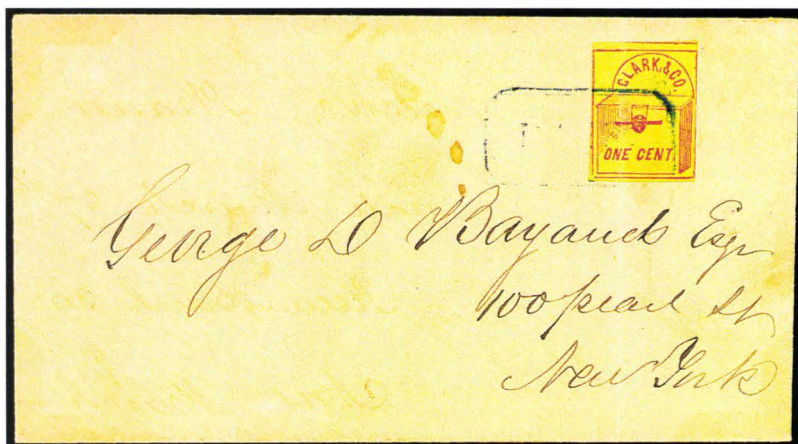 CLARK & CO.
ONE CENT.
George D Bayaud Esqr
100 pearl St
New York